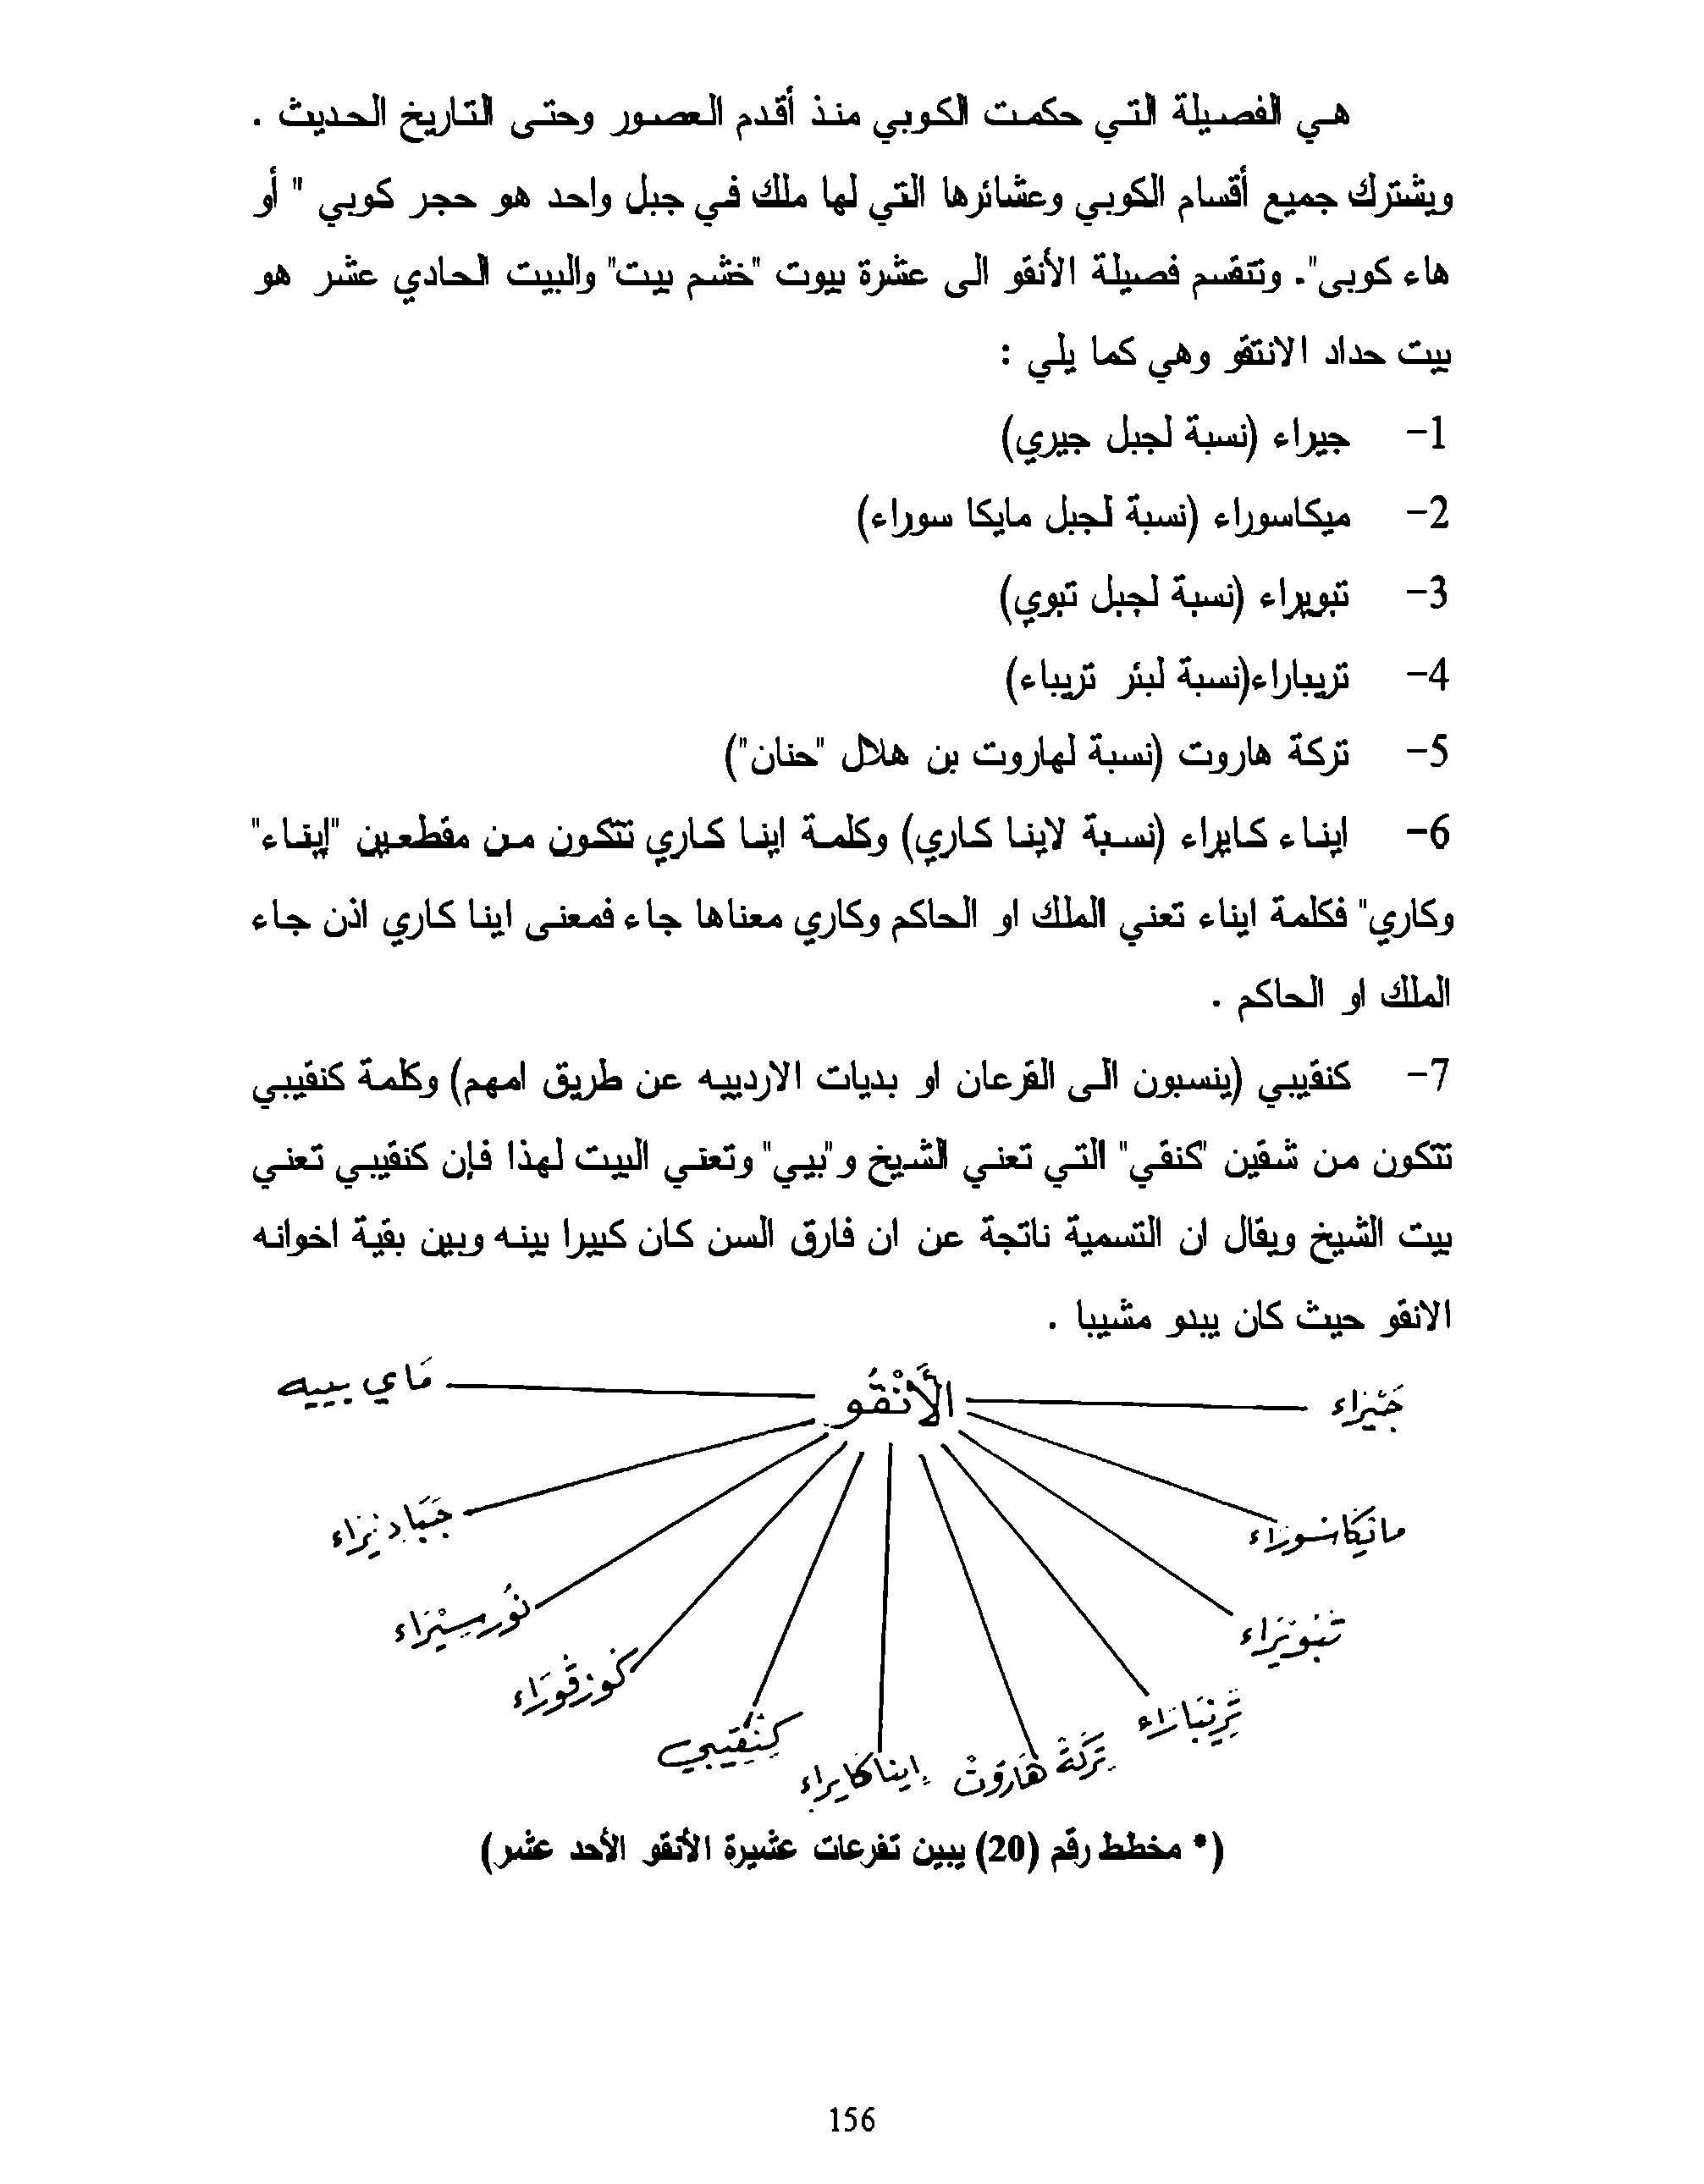 هي الفصيلة التي حكمت الكوبي منذ أقدم العصور وحتى التاريخ الحديث .
ويشترك جميع أقسام الكوبي وعشائرها التي لها ملك في جبل واحد هو حجر كوبي " أو
هاء كوبى". وتنقسم فصيلة الأنقو الى عشرة بيوت "خشم بيت" والبيت الحادي عشر هو
بيت حداد الانتقو وهي كما يلي :
1- جيراء (نسبة لجبل جيري)
2- ميكاسوراء (نسبة لجبل مايكا سوراء)
3- تبويراء (نسبة لجبل تبوي)
4- تريباراء(نسبة لبئر تريباء)
5- تركة هاروت (نسبة لهاروت بن هلال "حنان")
6- ايناء كايراء (نسبة لاينا كاري) وكلمة اينا كاري تتكون من مقطعين "إيناء"
وكاري" فكلمة ايناء تعني الملك او الحاكم وكاري معناها جاء فمعنى اينا كاري اذن جاء
الملك او الحاكم .
7- كنقيبي (ينسبون الى القرعان او بديات الاردييه عن طريق امهم) وكلمة كنقيبي
تتكون من شقين "كنقي" التي تعني الشيخ و"بيي" وتعني البيت لهذا فإن كنقيبي تعني
بيت الشيخ ويقال ان التسمية ناتجة عن ان فارق السن كان كبيرا بينه وبين بقية اخوانه
الانقو حيث كان يبدو مشيبا .
الأَنْقُو
جَيْرَاء
مائيكاسوراء
تبويَراء
تِرِيْبَارَاء
تِركَةْ هَارَوْتْ
إيناكايراء
كِنْقِيْبِي
كُوزقُورَاء
نُورسِيْرَاء
مَاي بييه
(* مخطط رقم (20) يبين تفرعات عشيرة الأنقو الأحد عشر)
156